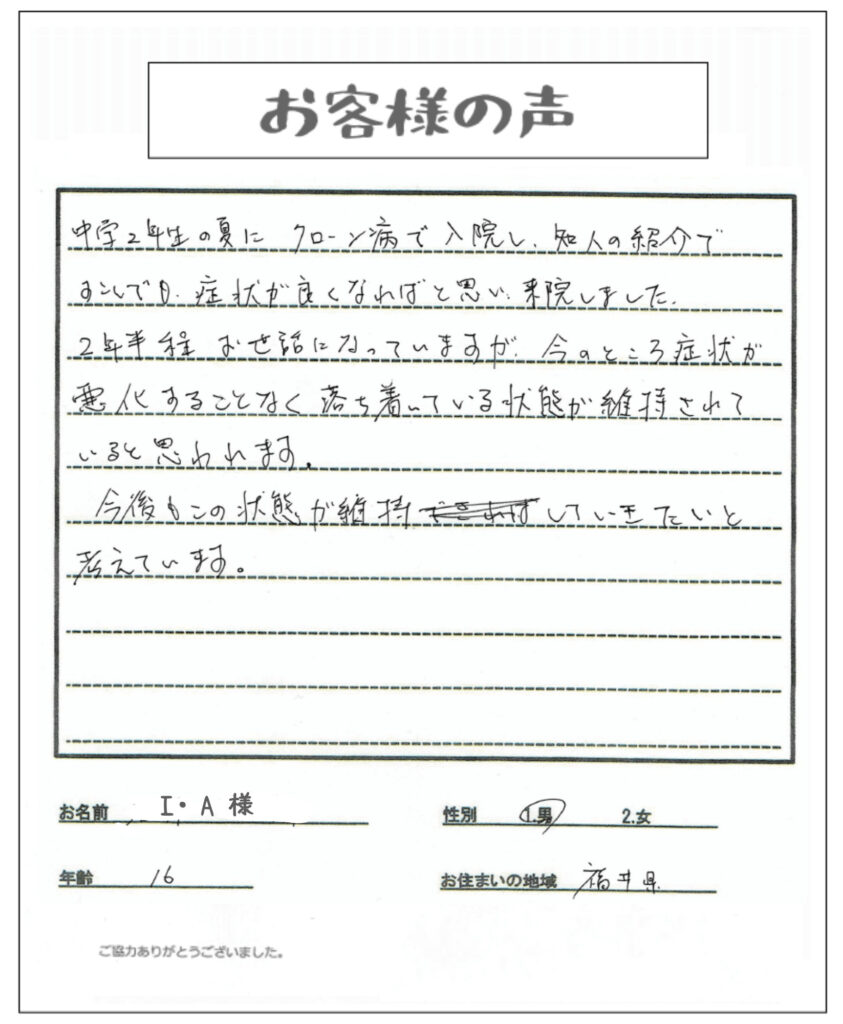 お客様の声
中学2年生の夏に クローン病で入院し、知人の紹介で
すこしでも、症状が良くなればと思い、来院しました。
2年半程 お世話になっていますが、今のところ症状が
悪化することなく落ち着いている状態が維持されて
いると思われます。
今後もこの状態が維持できればしていきたいと
考えています。
お名前 I・A 様 性別 1.男 2.女
年齢 16 お住まいの地域 福井県
ご協力ありがとうございました。